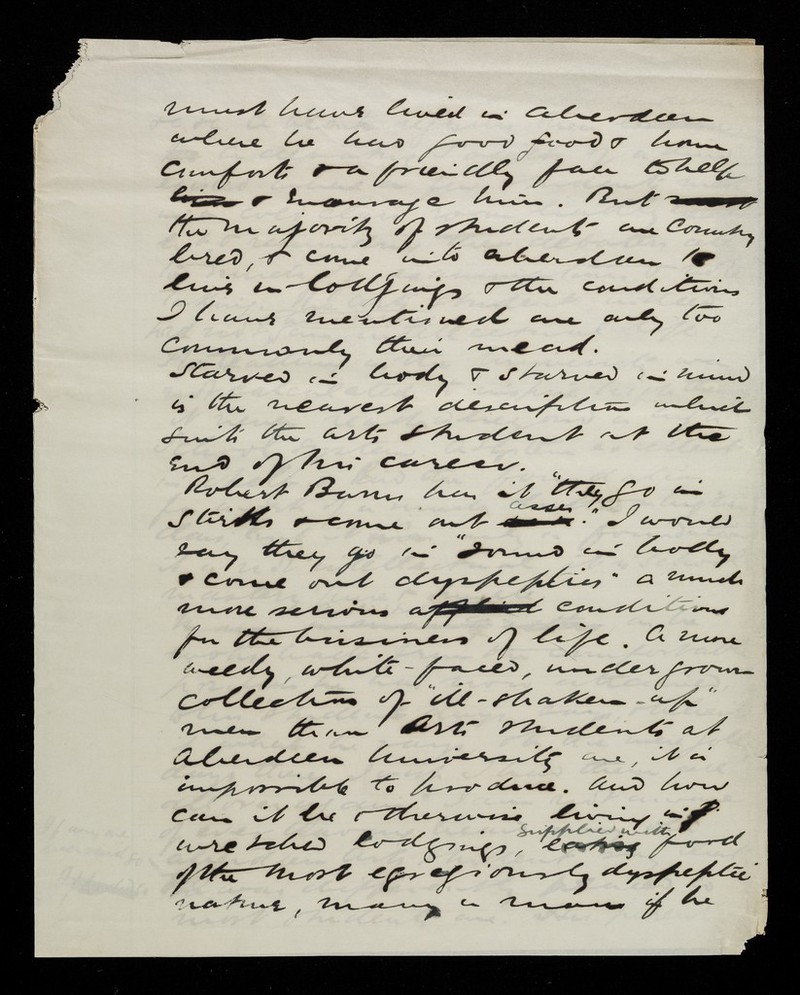 must have lived in Aberdeen
where he had good food & home
comforts & a friendly face to help
him & encourage him. But most
the majority of students are country
bred, & come into Aberdeen to
live in lodgings & the conditions
I have mentioned are only too
commonly their mead.
Starved in body & starved in mind
is the nearest description which
suits the arts student at the
end of his career.
Robert Burns has it "they go in
asses
stirks & come out." I would
say they go in "sound in body
& come out dyspeptics" a much
more serious applied conditions
for the business of life. A more
weedy, white-faced, undergrown
collection of "ill-shaken-up"
men than Arts students at
Aberdeen University are, it is
impossible to produce. And how
can it be otherwise living in
supplied with
wretched lodgings, eating food
of the most egregiously dyspeptic
nature, many a man if he